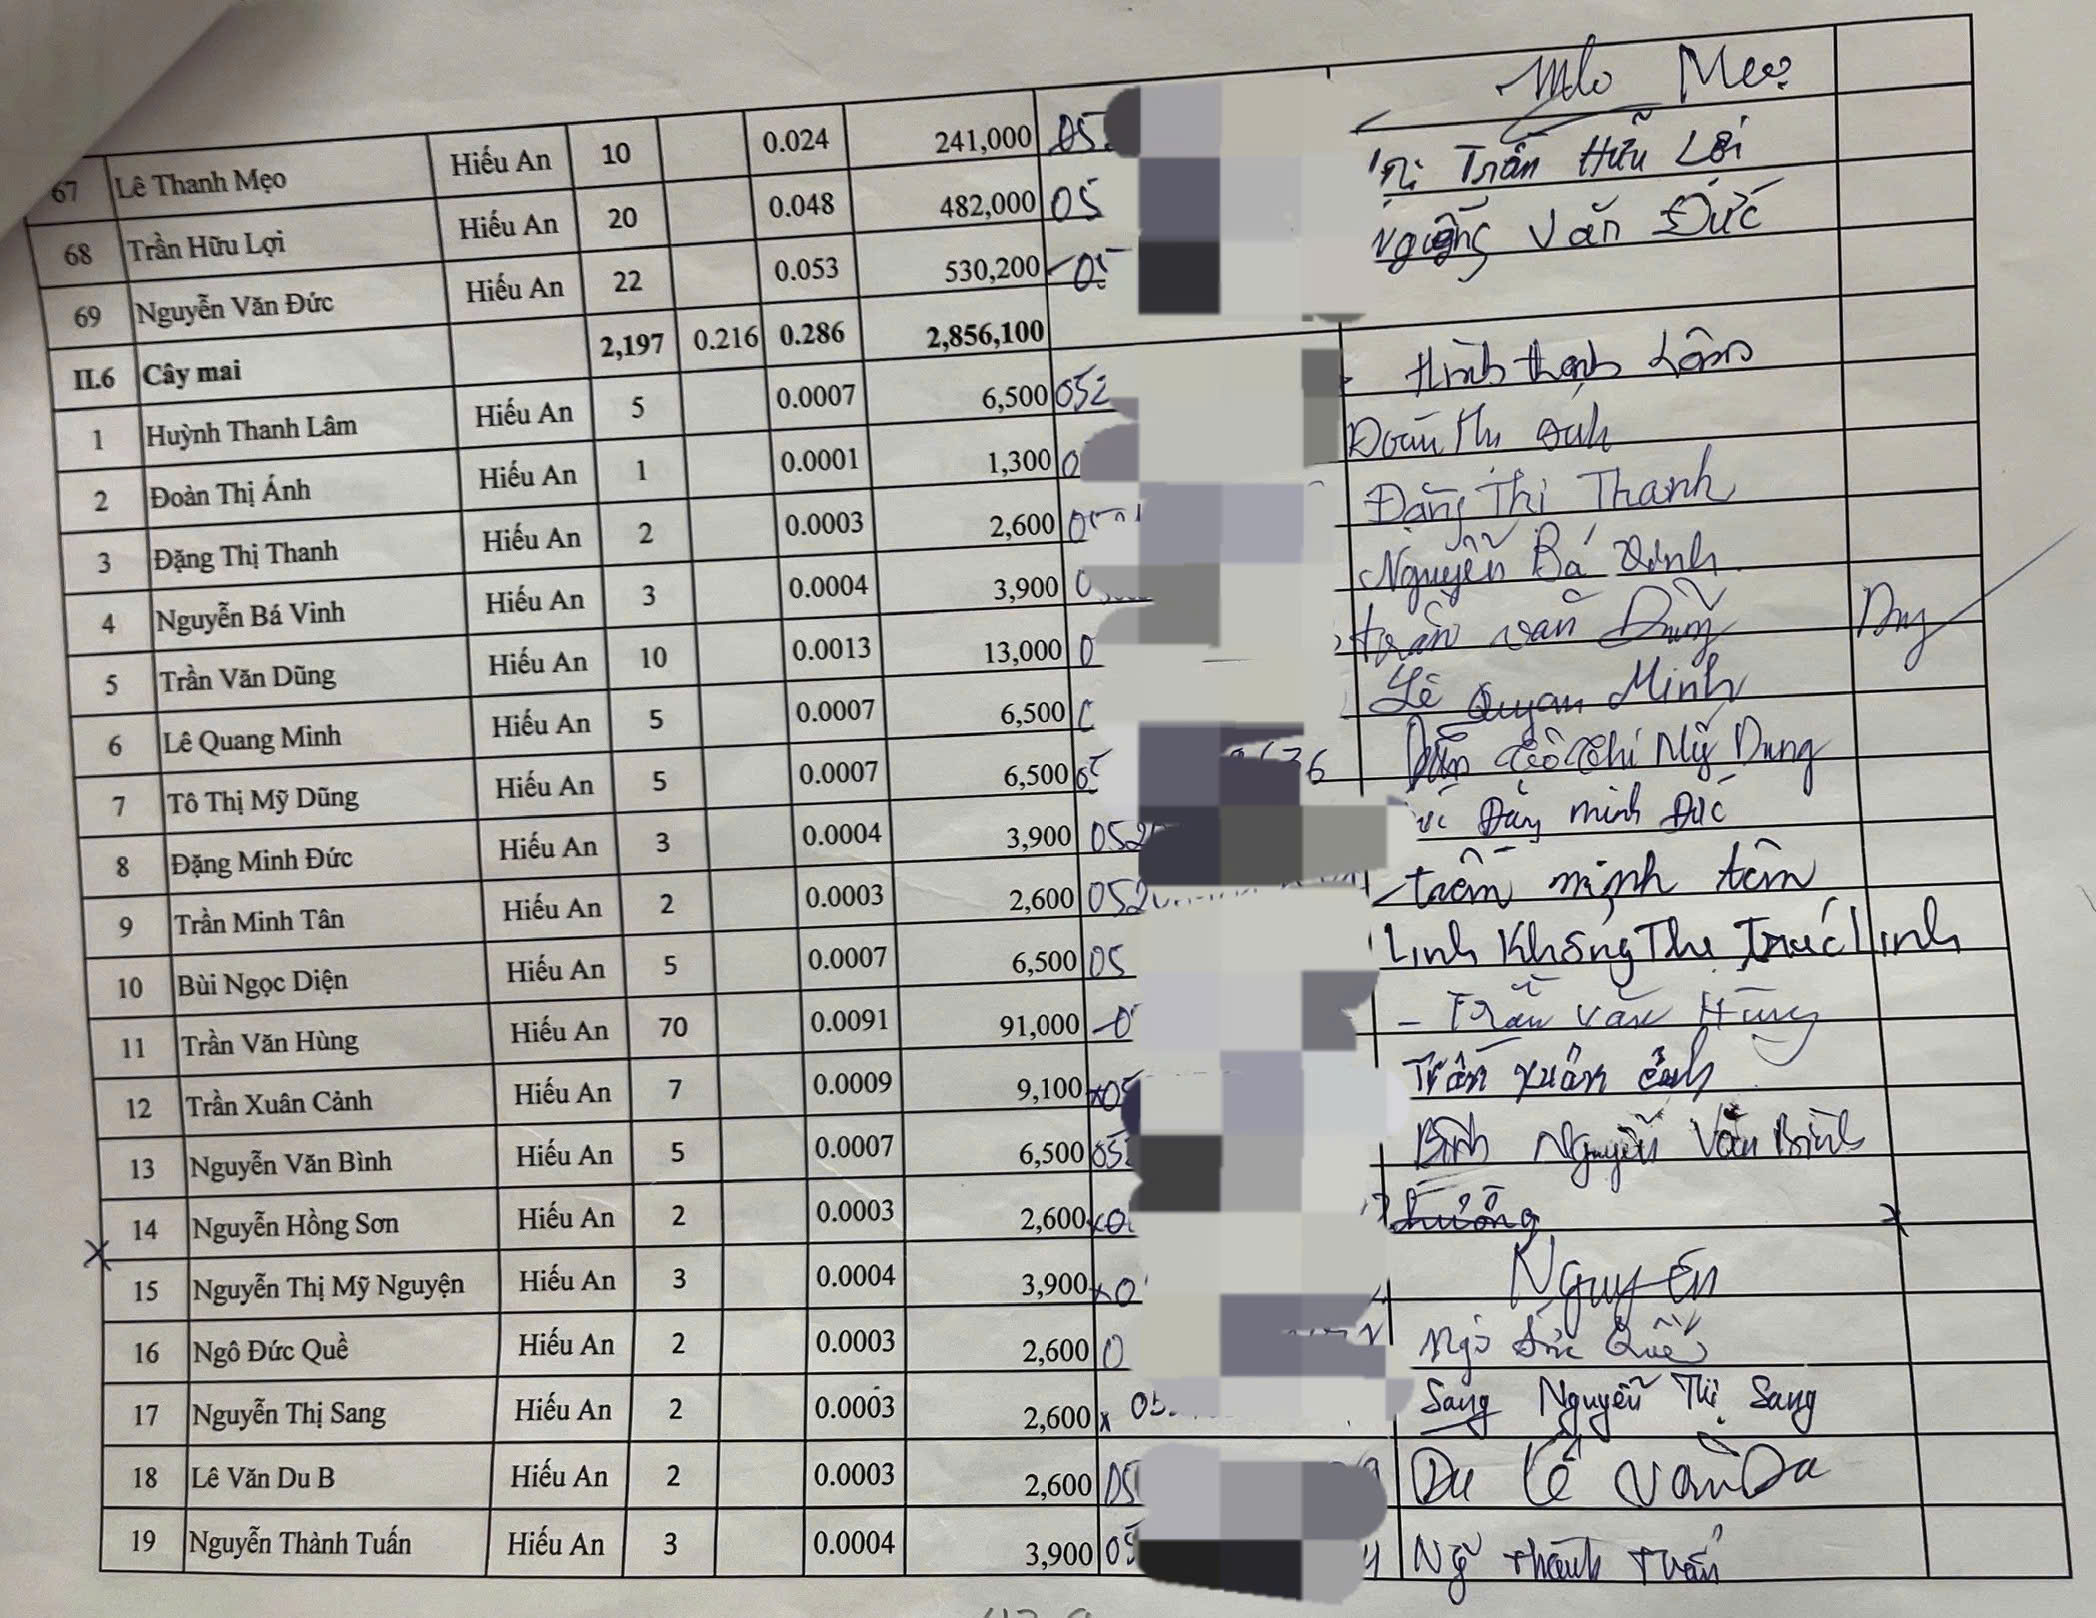 67 Lê Thanh Mẹo Hiếu An 10 0.024 241,000 05 Mẹo
68 Trần Hữu Lợi Hiếu An 20 0.048 482,000 05 Trần Hữu Lợi
69 Nguyễn Văn Đức Hiếu An 22 0.053 530,200 Văn Đức
II.6 Cây mai 2,197 0.216 0.286 2,856,100
1 Huỳnh Thanh Lâm Hiếu An 5 0.0007 6,500 052
2 Đoàn Thị Ánh Hiếu An 1 0.0001 1,300 0
3 Đặng Thị Thanh Hiếu An 2 0.0003 2,600 Đặng Thị Thanh
4 Nguyễn Bá Vinh Hiếu An 3 0.0004 3,900 0 Nguyễn Bá Vinh
5 Trần Văn Dũng Hiếu An 10 0.0013 13,000 0 trần văn Dũng
6 Lê Quang Minh Hiếu An 5 0.0007 6,500 Lê Quyan Minh
7 Tô Thị Mỹ Dũng Hiếu An 5 0.0007 6,500 Mỹ Dung
8 Đặng Minh Đức Hiếu An 3 0.0004 3,900 052 minh Đức
9 Trần Minh Tân Hiếu An 2 0.0003 2,600 052 trần minh tân
10 Bùi Ngọc Diện Hiếu An 5 0.0007 6,500 05 Linh Khổng Thị Trúc Linh
11 Trần Văn Hùng Hiếu An 70 0.0091 91,000 - Trần Văn Hùng
12 Trần Xuân Cảnh Hiếu An 7 0.0009 9,100 x05 Trần Xuân Cảnh
13 Nguyễn Văn Bình Hiếu An 5 0.0007 6,500 052 Bình Nguyễn Văn Bình
14 Nguyễn Hồng Sơn Hiếu An 2 0.0003 2,600 x0
x 15 Nguyễn Thị Mỹ Nguyện Hiếu An 3 0.0004 3,900 x0 Nguyen
16 Ngô Đức Quề Hiếu An 2 0.0003 2,600 0 Ngô Đức Quề
17 Nguyễn Thị Sang Hiếu An 2 0.0003 2,600 x 05 Sang Nguyễn Thị Sang
18 Lê Văn Du B Hiếu An 2 0.0003 2,600 05 Du Lê Văn Du
19 Nguyễn Thành Tuấn Hiếu An 3 0.0004 3,900 05 Ng Thành Tuấn